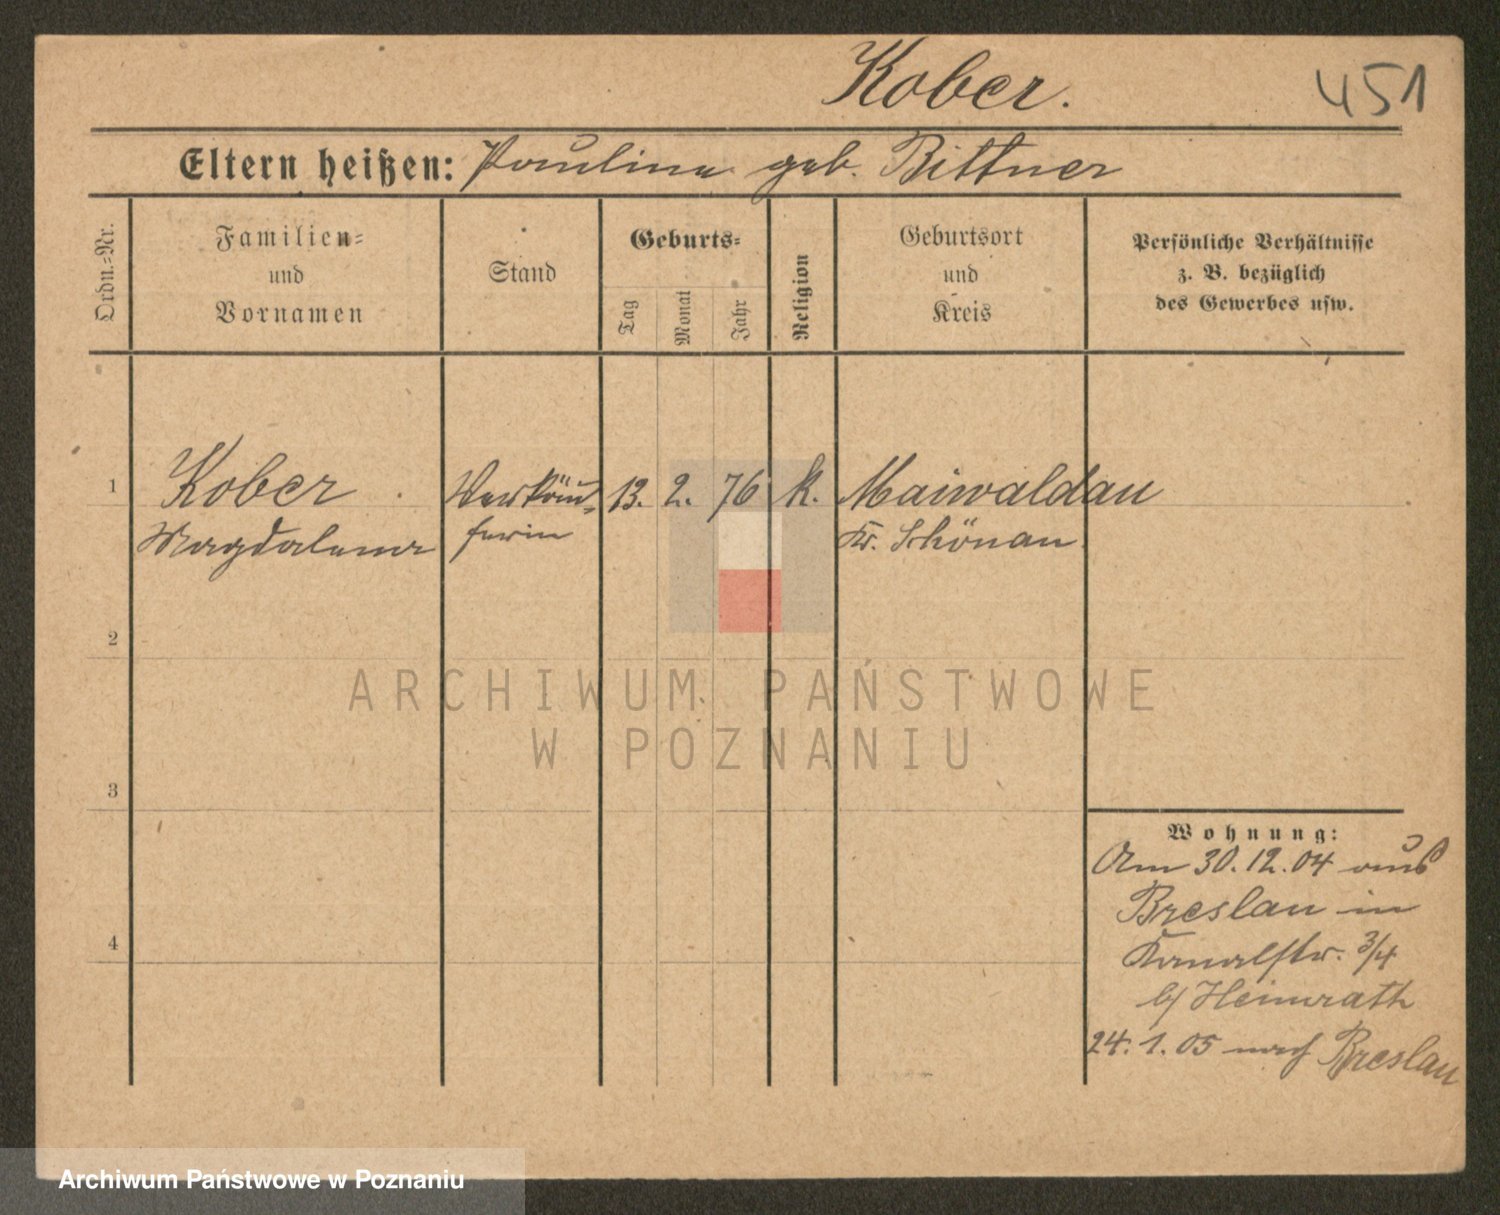 Kober.
451
Eltern heißen: Pauline geb. Bittner
Ordn.-Nr.
Familien-
und
Vornamen
Stand
Geburts-
Tag
Monat
Jahr
Religion
Geburtsort
und
Kreis
Persönliche Verhältnisse
z. B. bezüglich
des Gewerbes usw.
1 Kober Verkäu- 13. 2. 76 k. Maiwaldau
Magdalena ferin Kr. Schönau
2
3
4
Wohnung:
Am 30.12.04 aus
Breslau in
Kanalstr. 3/4
b/ Heimrath
24. 1. 05 nach Breslau
ARCHIWUM PAŃSTWOWE
W POZNANIU
Archiwum Państwowe w Poznaniu